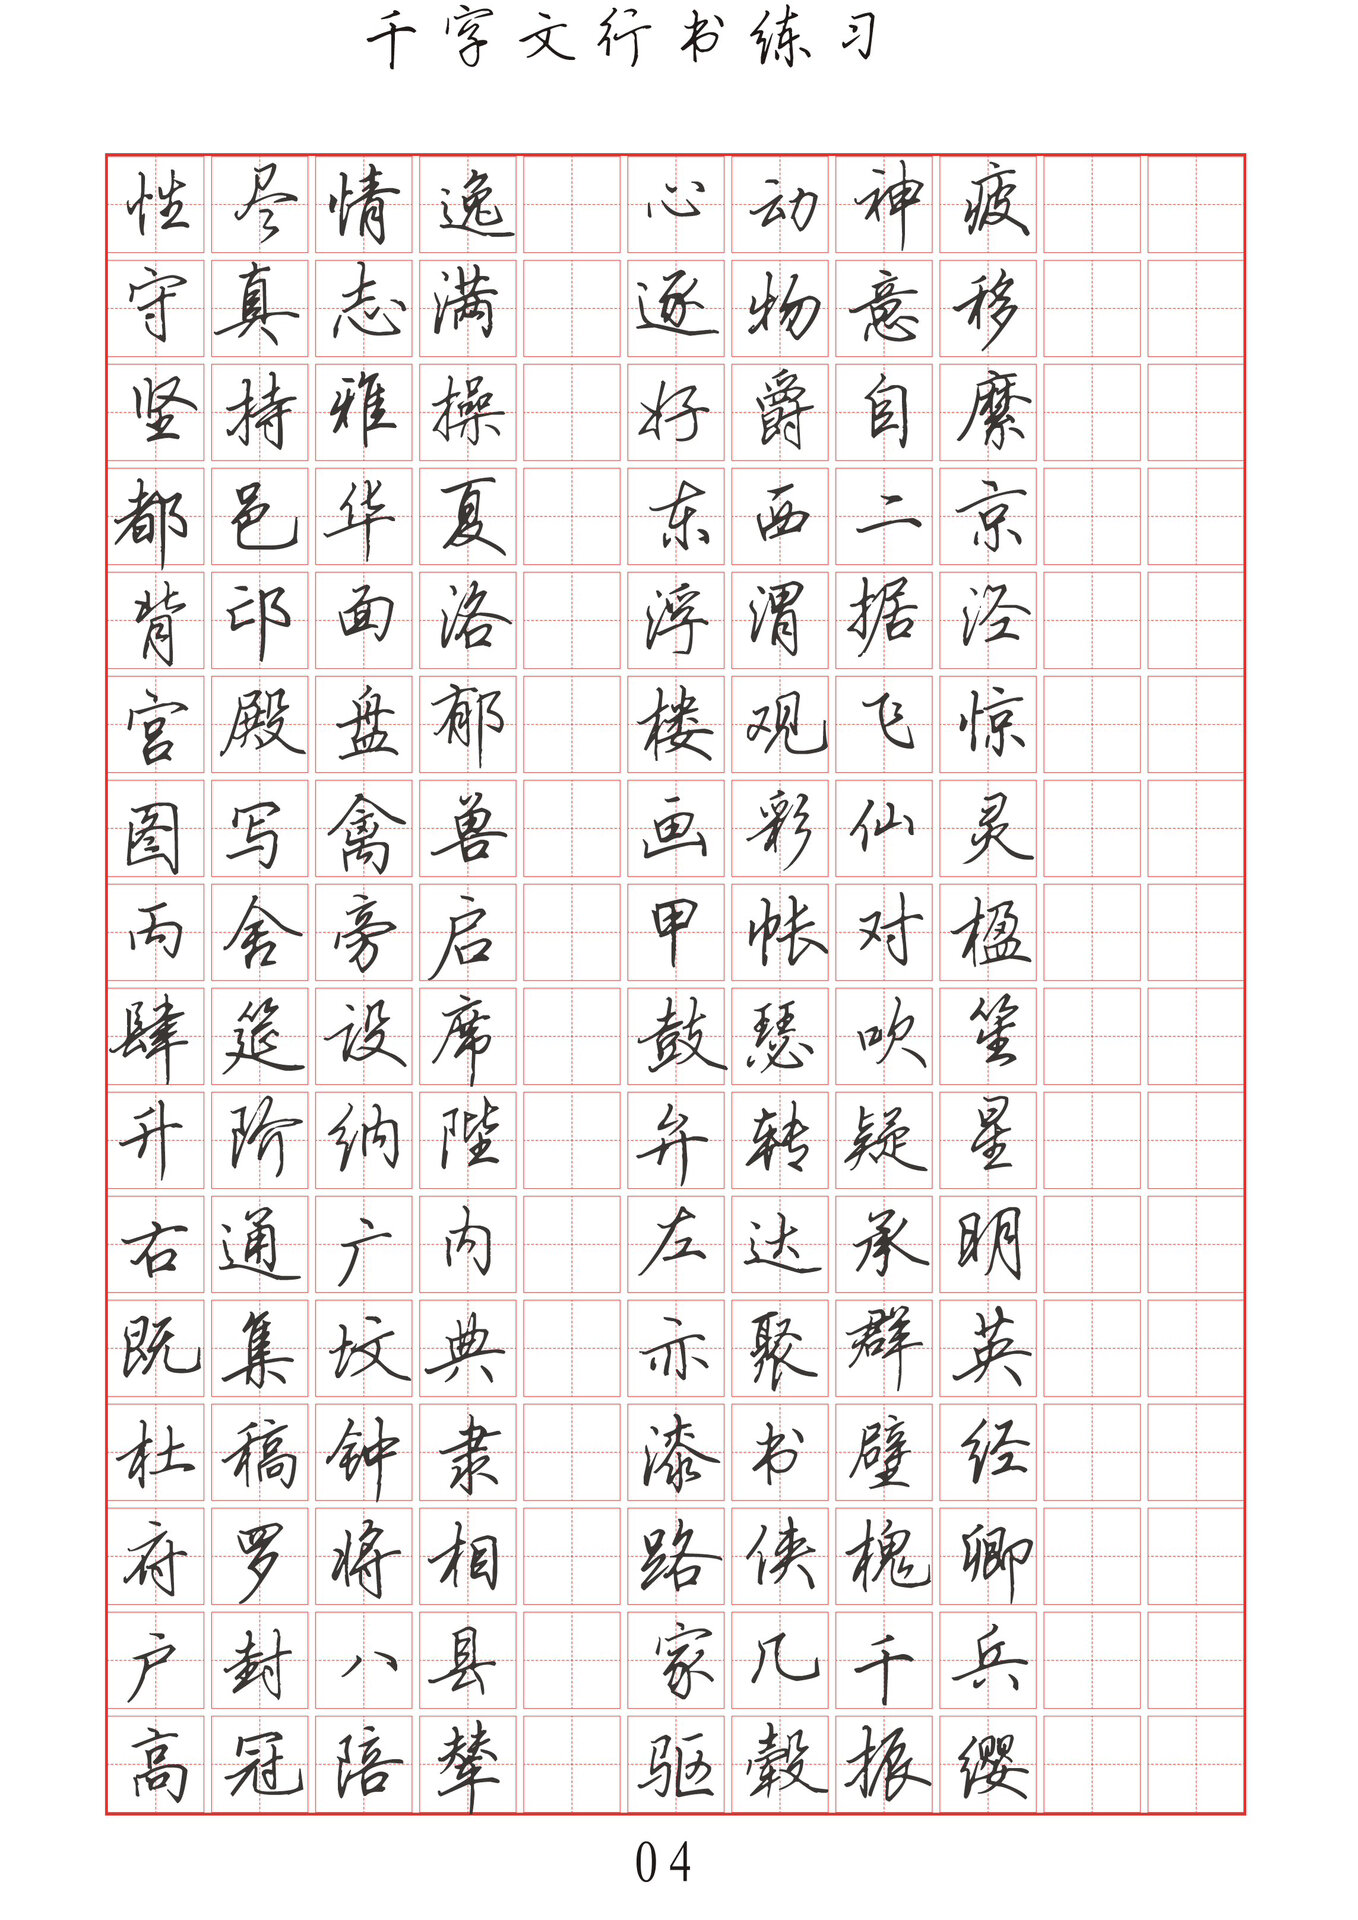 千字文行书练习
性尽情逸 心动神疲
守真志满 逐物意移
坚持雅操 好爵自縻
都邑华夏 东西二京
背邙面洛 浮渭据泾
宫殿盘郁 楼观飞惊
图写禽兽 画彩仙灵
丙舍旁启 甲帐对楹
肆筵设席 鼓瑟吹笙
升阶纳陛 弁转疑星
右通广内 左达承明
既集坟典 亦聚群英
杜稿钟隶 漆书壁经
府罗将相 路侠槐卿
户封八县 家几千兵
高冠陪辇 驱毂振缨
04